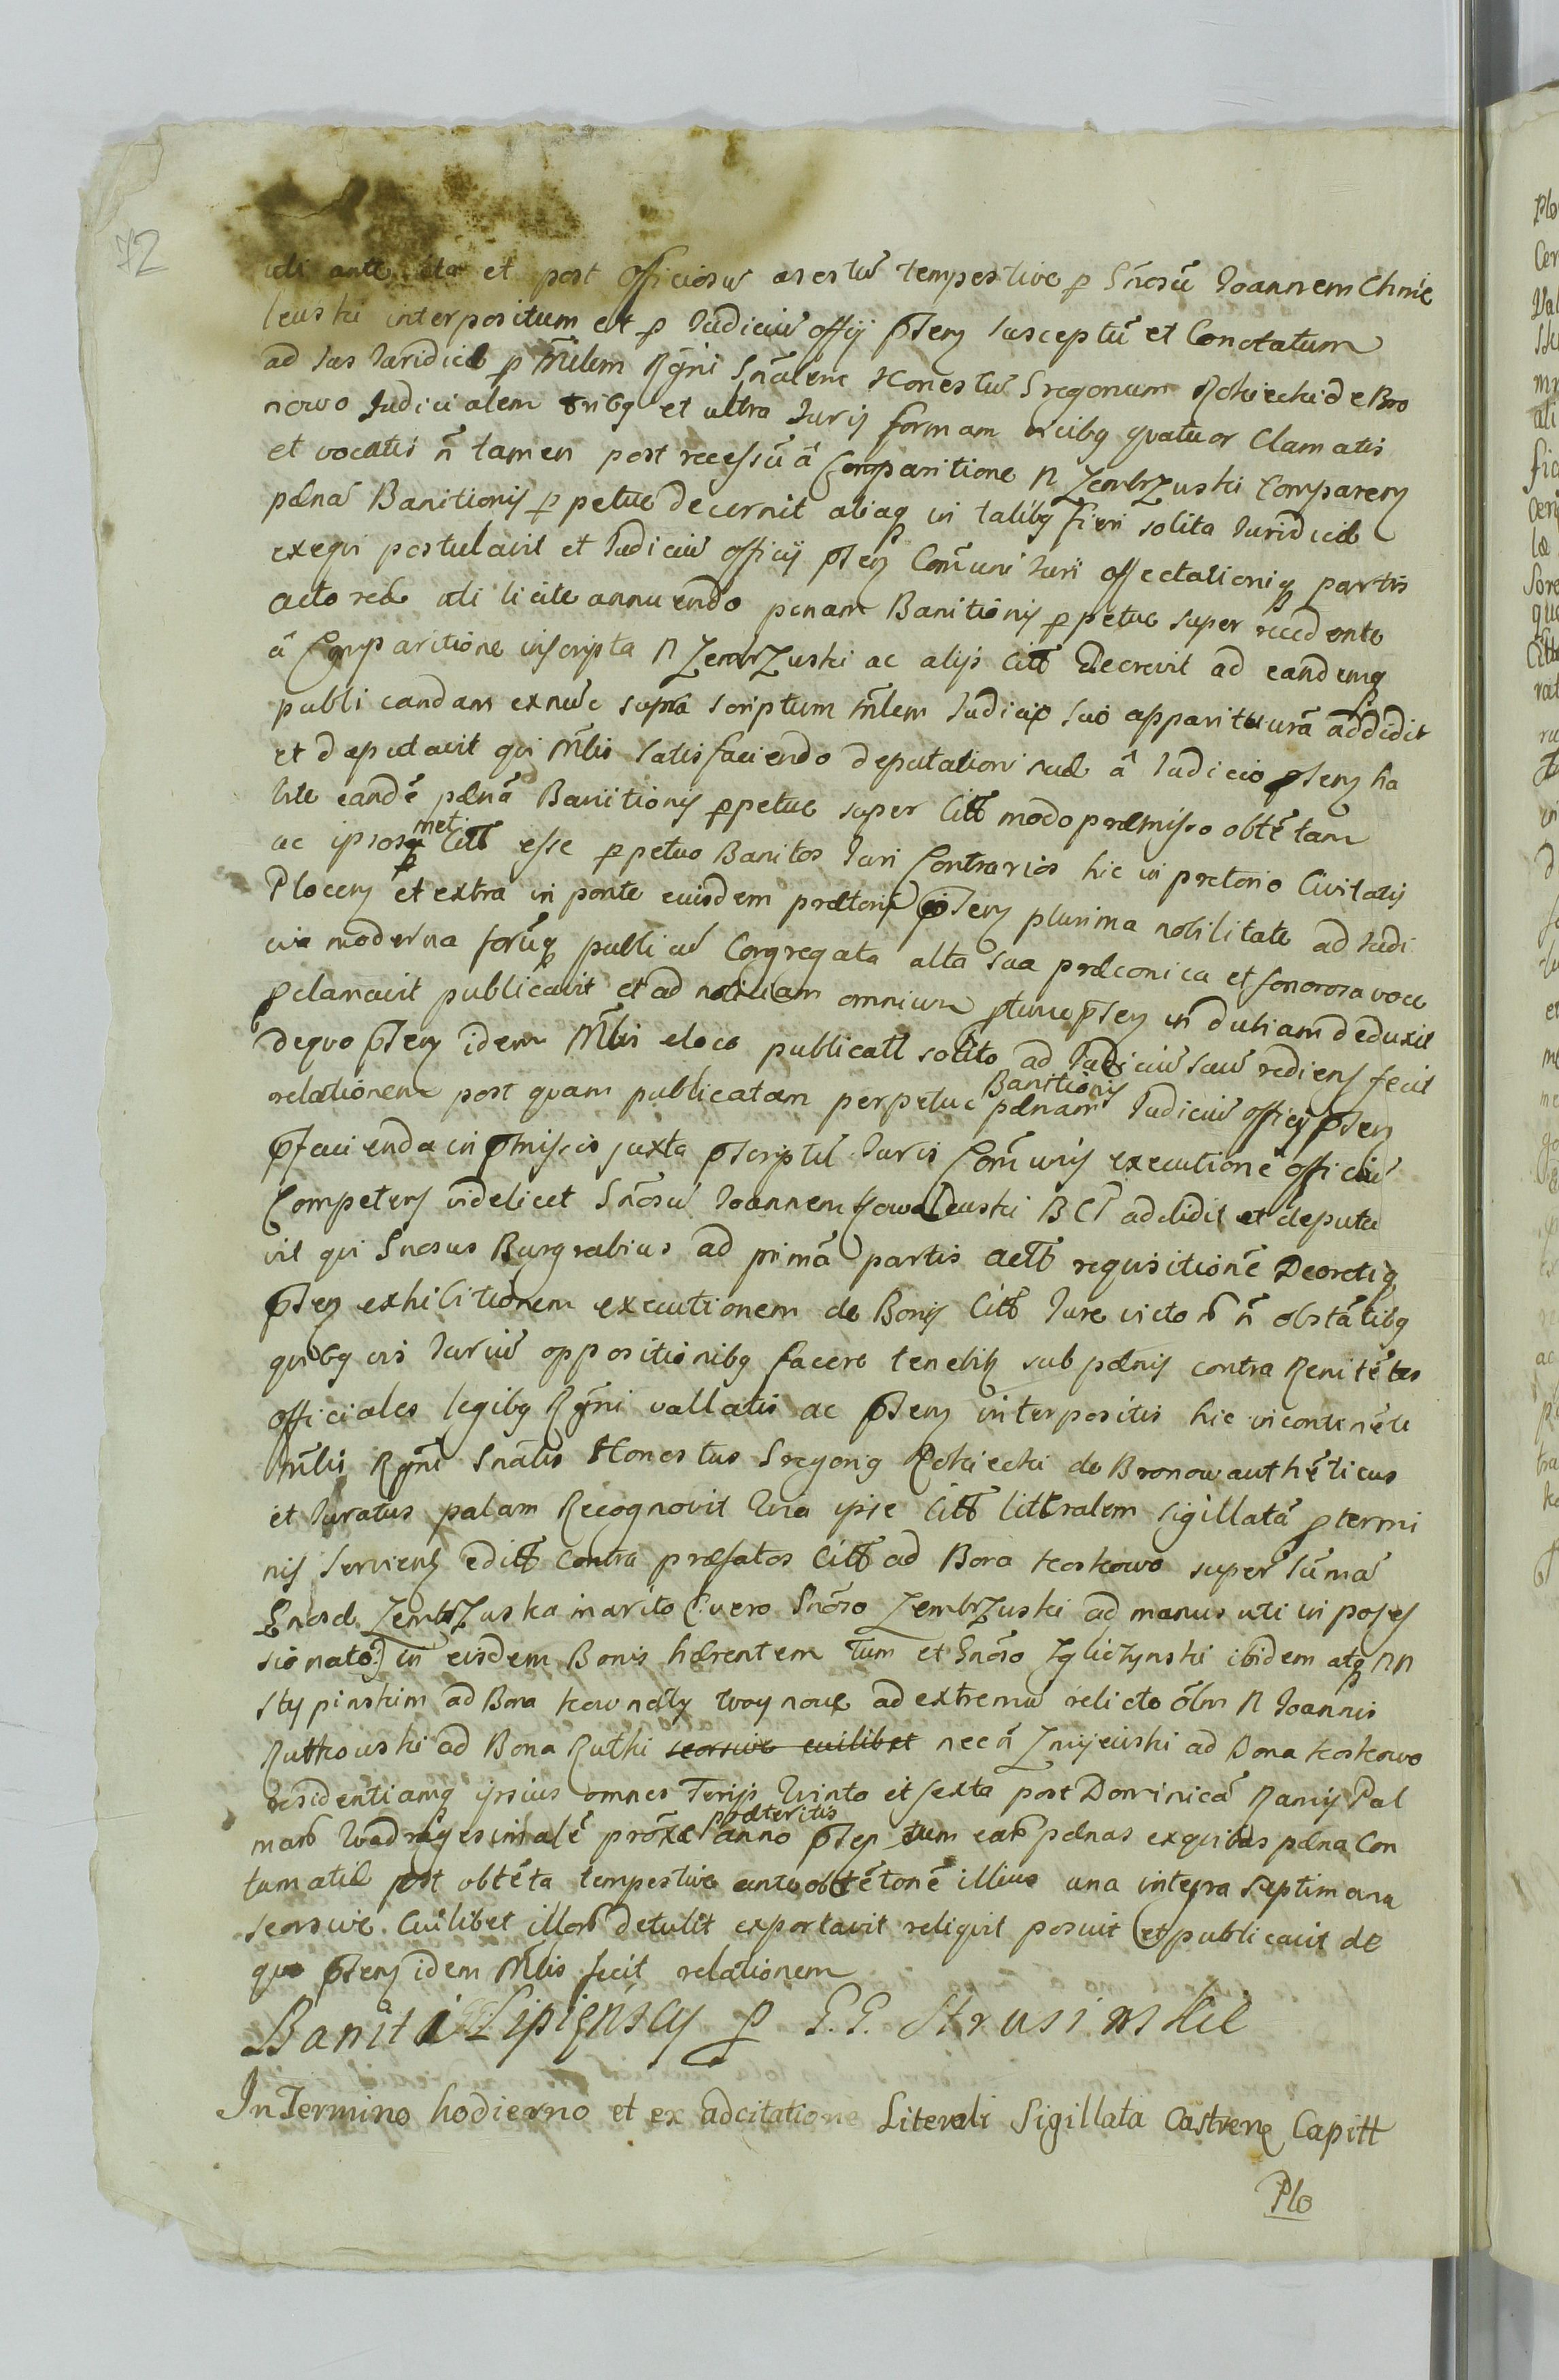 72
uti ante ita et post Officiosũ arestũ tempestive p Gñosũ Joannem Chmie
leuski interpositum et p Judiciũ offij pñtem susceptũ et Conotatum
ad Jus Juridice p Mĩlem Rgñi Gñalem Honestũ Gregorium Rokiecki de Bro
nowo Judicialem tribq et ultra Juris formam vicibq quatuor Clamatis
et vocatis ñ tamen post recessũ â Comparitione N Zembrzuski Comparen
pænã Banitionis ppetuæ decernit aliaq in talibq fieri solita Juridice
exequi postulavit et Judiciũ officij pñtem Comũni Juri affectationiq partis
actoreæ uti licite annuendo penam Banitionis ppetuæ super recedente
â Comparitione inscripta N Zembrzuski ac alijs Citt Decrevit ad eandemq
publicandam exnũc supra scriptum Mĩlem Judicio suo apparituurã addidit
et deputavit qui Mĩlis satisfaciendo deputationi suæ â Judicio pñtem ha
bite eandẽ pænã Banitionis ppetuæ super Citt modo præmisso obtẽtam
ac ipsosq met Citt esse ppetuo Banitos Juri Contrarios hic in pretorio Civitatis
Plocen et extra in ponte eiusdem prætorij pñtem plurima nobilitate ad Judi
cia moderna forũq publicũ Congregata alta sua præconica et sonorosa voce
pclamavit publicavit et ad notitiam omnium ptunc pñtem in dubiam deduxit
De quo pñtem idem Mĩlis e loco publicatt solito ad Judiciũ suũ rediens fecit
relationem post quam publicatam perpetuæ Banitionis pænam Judiciũ officij pñtem
pfacienda in pmissis juxta pscriptũ Juris Comũnis executionẽ officiũ
Competens videlicet Gñosũ Joannem Kowaleuski BCP addidit et deputa
vit qui Gnosus Burgrabius ad primã partis actt requisitionẽ Decretiq
pñtem exhibitionem executionem de Bonis Citt Jure victo ñ obstãtibq
quibq vis Juriũ oppositionibq facere tenebit sub pænis contra Renitẽtes
officiales legibq Rgñi vallatis ac pñtem interpositis hic in continẽti
Mĩlis Rgñi Gnalis Honestus Gregoriq Rokiecki de Bronow authẽticus
et Juratus palam Recognovit Quia ipse Citt litteralem sigillatã p termi
nis serviens editt Contra præfatos Citt ad Bona Koskowo super sũmã
Gnosæ Zembrzuska marito (vero Gnõso Zembrzuski ad manus uti in posses
sionato:) in eisdem Bonis hærentem Tum et Gnõso Zglichynski ibidem atq NN
Stypinskim ad Bona Kownaty Woynowe ad extremũ relicto olim N Joannis
Rutkowski ad Bona Rutki seorsive cuilibet necñ Zmijeuski ad Bona Koskowo
residentiamq ipsius omnes Terijs Quinto et sexta post Dominicã Ramis Pal
marũ Quadragesimalẽ proxæ præteritis anno pñtem tum eas pænas exquibus pæna Con
tumatiæ post obtẽta tempestive ante obtẽtonẽ illius una integra septimana
seorsive Cuilibet illorũ detulit exportavit reliquit posuit et publicavit de
quo pñtem idem Mĩlis fecit relationem
Banit Lipienscy p G.G. Strusinskie
In Termino hodierno et ex adcitatione Literali Sigillata Castren Capitt
Plo